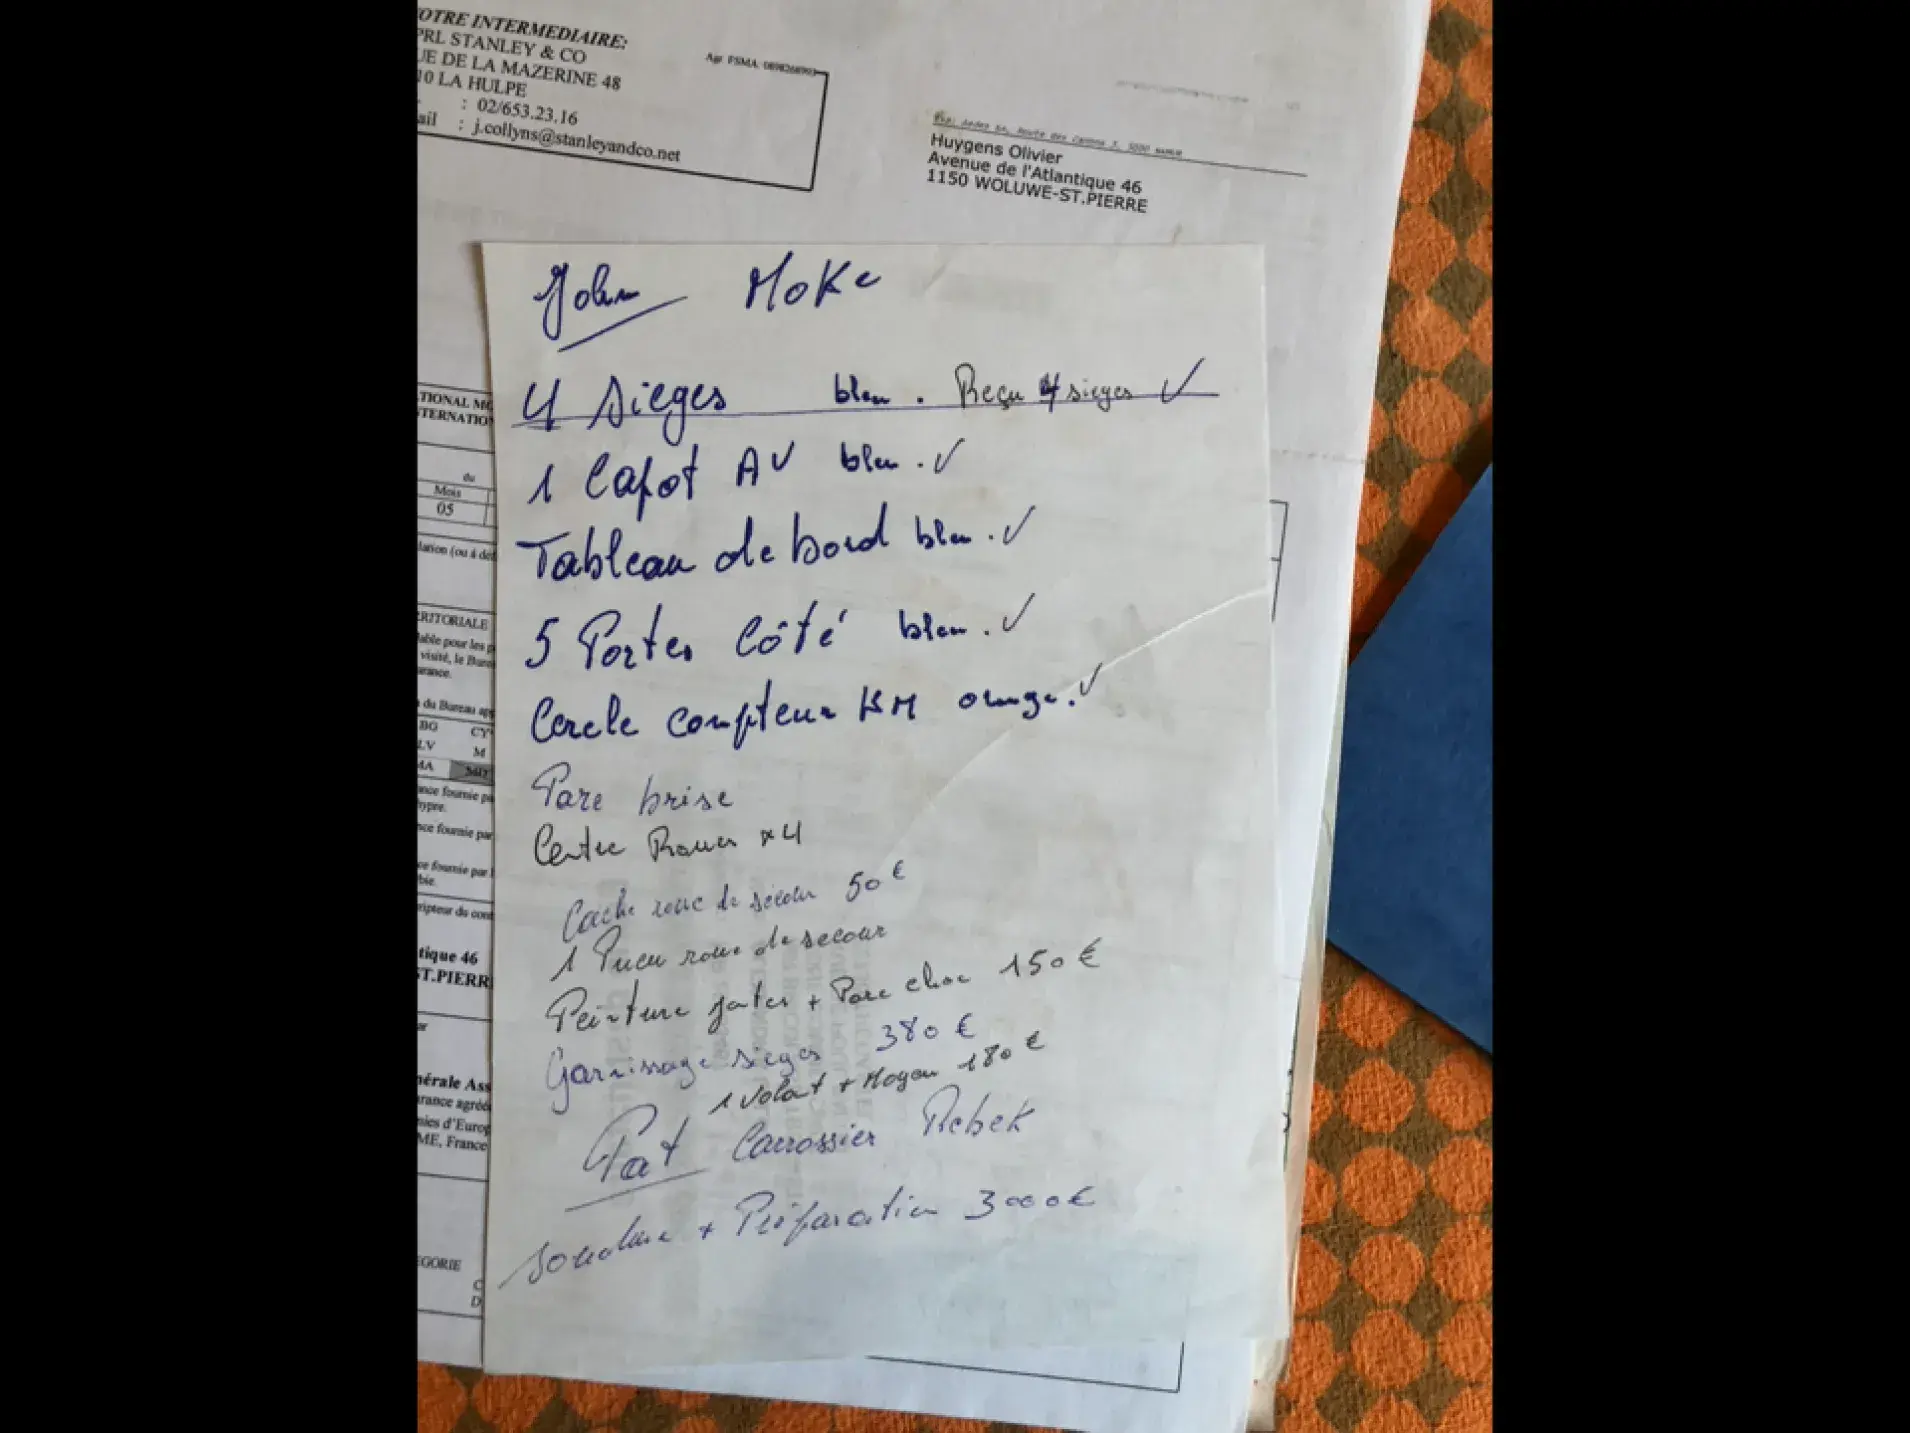 OTRE INTERMEDIAIRE:
PRL STANLEY & CO
UE DE LA MAZERINE 48
10 LA HULPE
: 02/653.23.16
ail : j.collyns@stanleyandco.net
Agr FSMA:
Huygens Olivier
Avenue de l'Atlantique 46
1150 WOLUWE-ST.PIERRE
John Moke
4 sieges bleu. Reçu 4 sieges ✓
1 Capot AV bleu. ✓
Tableau de bord bleu. ✓
5 Portes Côté bleu. ✓
Cercle compteur KM orange. ✓
Pare brise
Centre Roues x4
Cache roue de secour 50 €
1 Pneu roue de secour
Peinture jantes + Pare choc 150 €
Garnissage sieges 380 €
1 Volant + Moyeu 180 €
Pat Carrossier Rebek
soudure + Préparation 3000 €
TIONAL MO
TERNATIO
du
Mois
05
lation (ou à déf
RRITORIALE
lable pour les p
visité, le Bure
urance.
du Bureau app
BG CY
LV M
MA
nce fournie pa
hypre.
nce fournie par
ce fournie par l
bie.
ripteur du cont
tique 46
ST.PIERR
ar
nérale Ass
rance agréé
nies d'Europ
ME, France
EGORIE
C
D